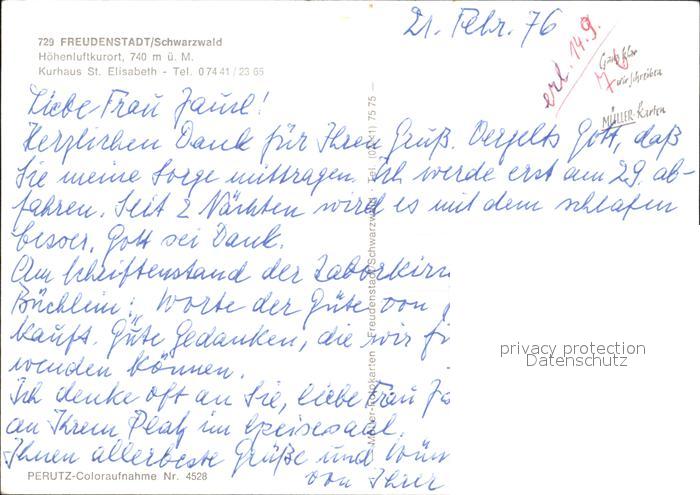 21. Febr. 76
729 FREUDENSTADT/Schwarzwald
Höhenluftkurort, 740 m ü. M.
Kurhaus St. Elisabeth - Tel. 0 74 41 / 23 65
erl. 14.9.
wir schreiben
MÜLLER-Karten
Liebe Frau
Herzlichen Dank für Ihren Gruß. Vergelts Gott, daß
Sie meine Sorge mittragen. Ich werde erst am 29. ab-
fahren. Seit 2 Nächten wird es mit dem schlafen
besser. Gott sei Dank.
Am Schriftenstand der Taborkirc
Büchlein: "Worte der Güte von
kauft. Gute Gedanken, die wir
wenden können.
Ich denke oft an Sie, liebe Frau
an Ihrem Platz im Speisesaal.
Ihnen allerbeste Grüße und Wün
von Ihrer
PERUTZ-Coloraufnahme Nr. 4528
Müller-Fotokarten · Freudenstadt/Schwarzwald · Tel. 75 75 —
privacy protection
Datenschutz